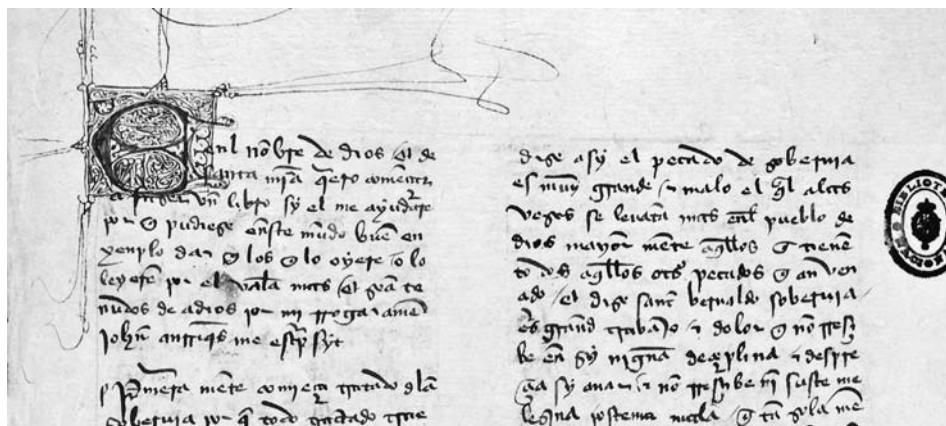 Enl nōbre de dios et de
santa mīa q̄ero comēçar
a fazer vn libro sy el me ayudare
por q̄ pudiese enste mūdo buē en
xenplo dar q̄ los q̄ lo oyesē o lo
leyesē por el vala mas et seā te
nudos de a dios por mi rrogar amē
johñ me
Primera mēte comieça tratado dla
soberuia por q̄ todo tractado
dize asy el pecado de soberuia
es muy grande e malo el q̄l alas
vezes se leuāta mas enl pueblo de
dios mayor mēte aq̄llos q̄ tienē
todos aq̄llos ots pecados q̄ an ven
et dize sant bernaldo soberuia
es grand trabajo e dolor q̄ nō rresçi
be en sy nigūa deçiplina e despre
çia sy e nō rresçibe nī sufre me
lezina postema mala q̄ tā sola mē
BIBLIOT
CIONAL